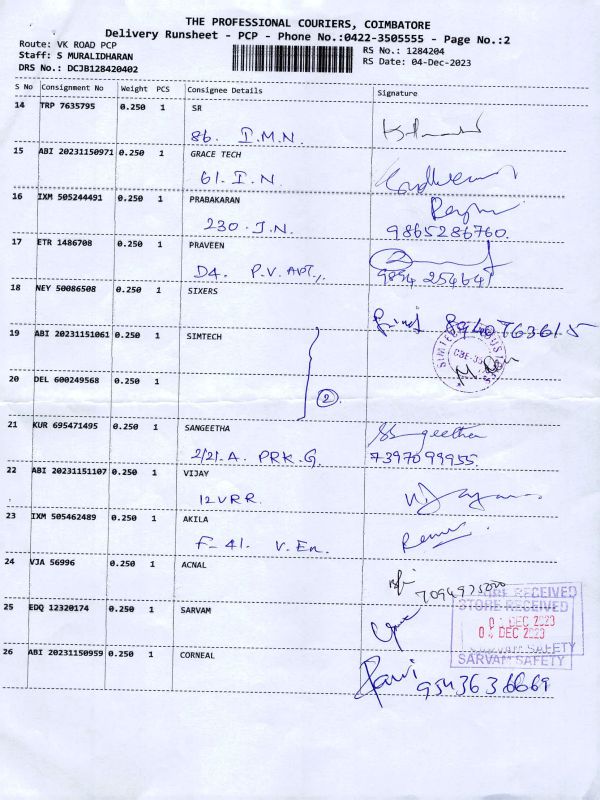 THE PROFESSIONAL COURIERS, COIMBATORE
Delivery Runsheet - PCP - Phone No.:0422-3505555 - Page No.:2
Route: VK ROAD PCP
Staff: S MURALIDHARAN
DRS No.: DCJB128420402
RS No.: 1284204
RS Date: 04-Dec-2023
S No Consignment No Weight PCS Consignee Details Signature
14 TRP 7635795 0.250 1 SR
86. I.M.N.
15 ABI 20231150971 0.250 1 GRACE TECH
61. I.N.
16 IXM 505244491 0.250 1 PRABAKARAN
230. I.N. 9865286760.
17 ETR 1486708 0.250 1 PRAVEEN
D4. P.V. APT,.
18 NEY 50086508 0.250 1 SIXERS
19 ABI 20231151061 0.250 1 SIMTECH
20 DEL 600249568 0.250 1
2
21 KUR 695471495 0.250 1 SANGEETHA Sangeetha
2/21. A. PRK. G. 7397099955.
22 ABI 20231151107 0.250 1 VIJAY
12 V.R.R.
23 IXM 505462489 0.250 1 AKILA
F-41. V. En.
24 VJA 56996 0.250 1 ACNAL
STORE RECEIVED
25 EDQ 12320174 0.250 1 SARVAM
04 DEC 2023
SARVAM SAFETY
26 ABI 20231150959 0.250 1 CORNEAL
Ravi 9543636669